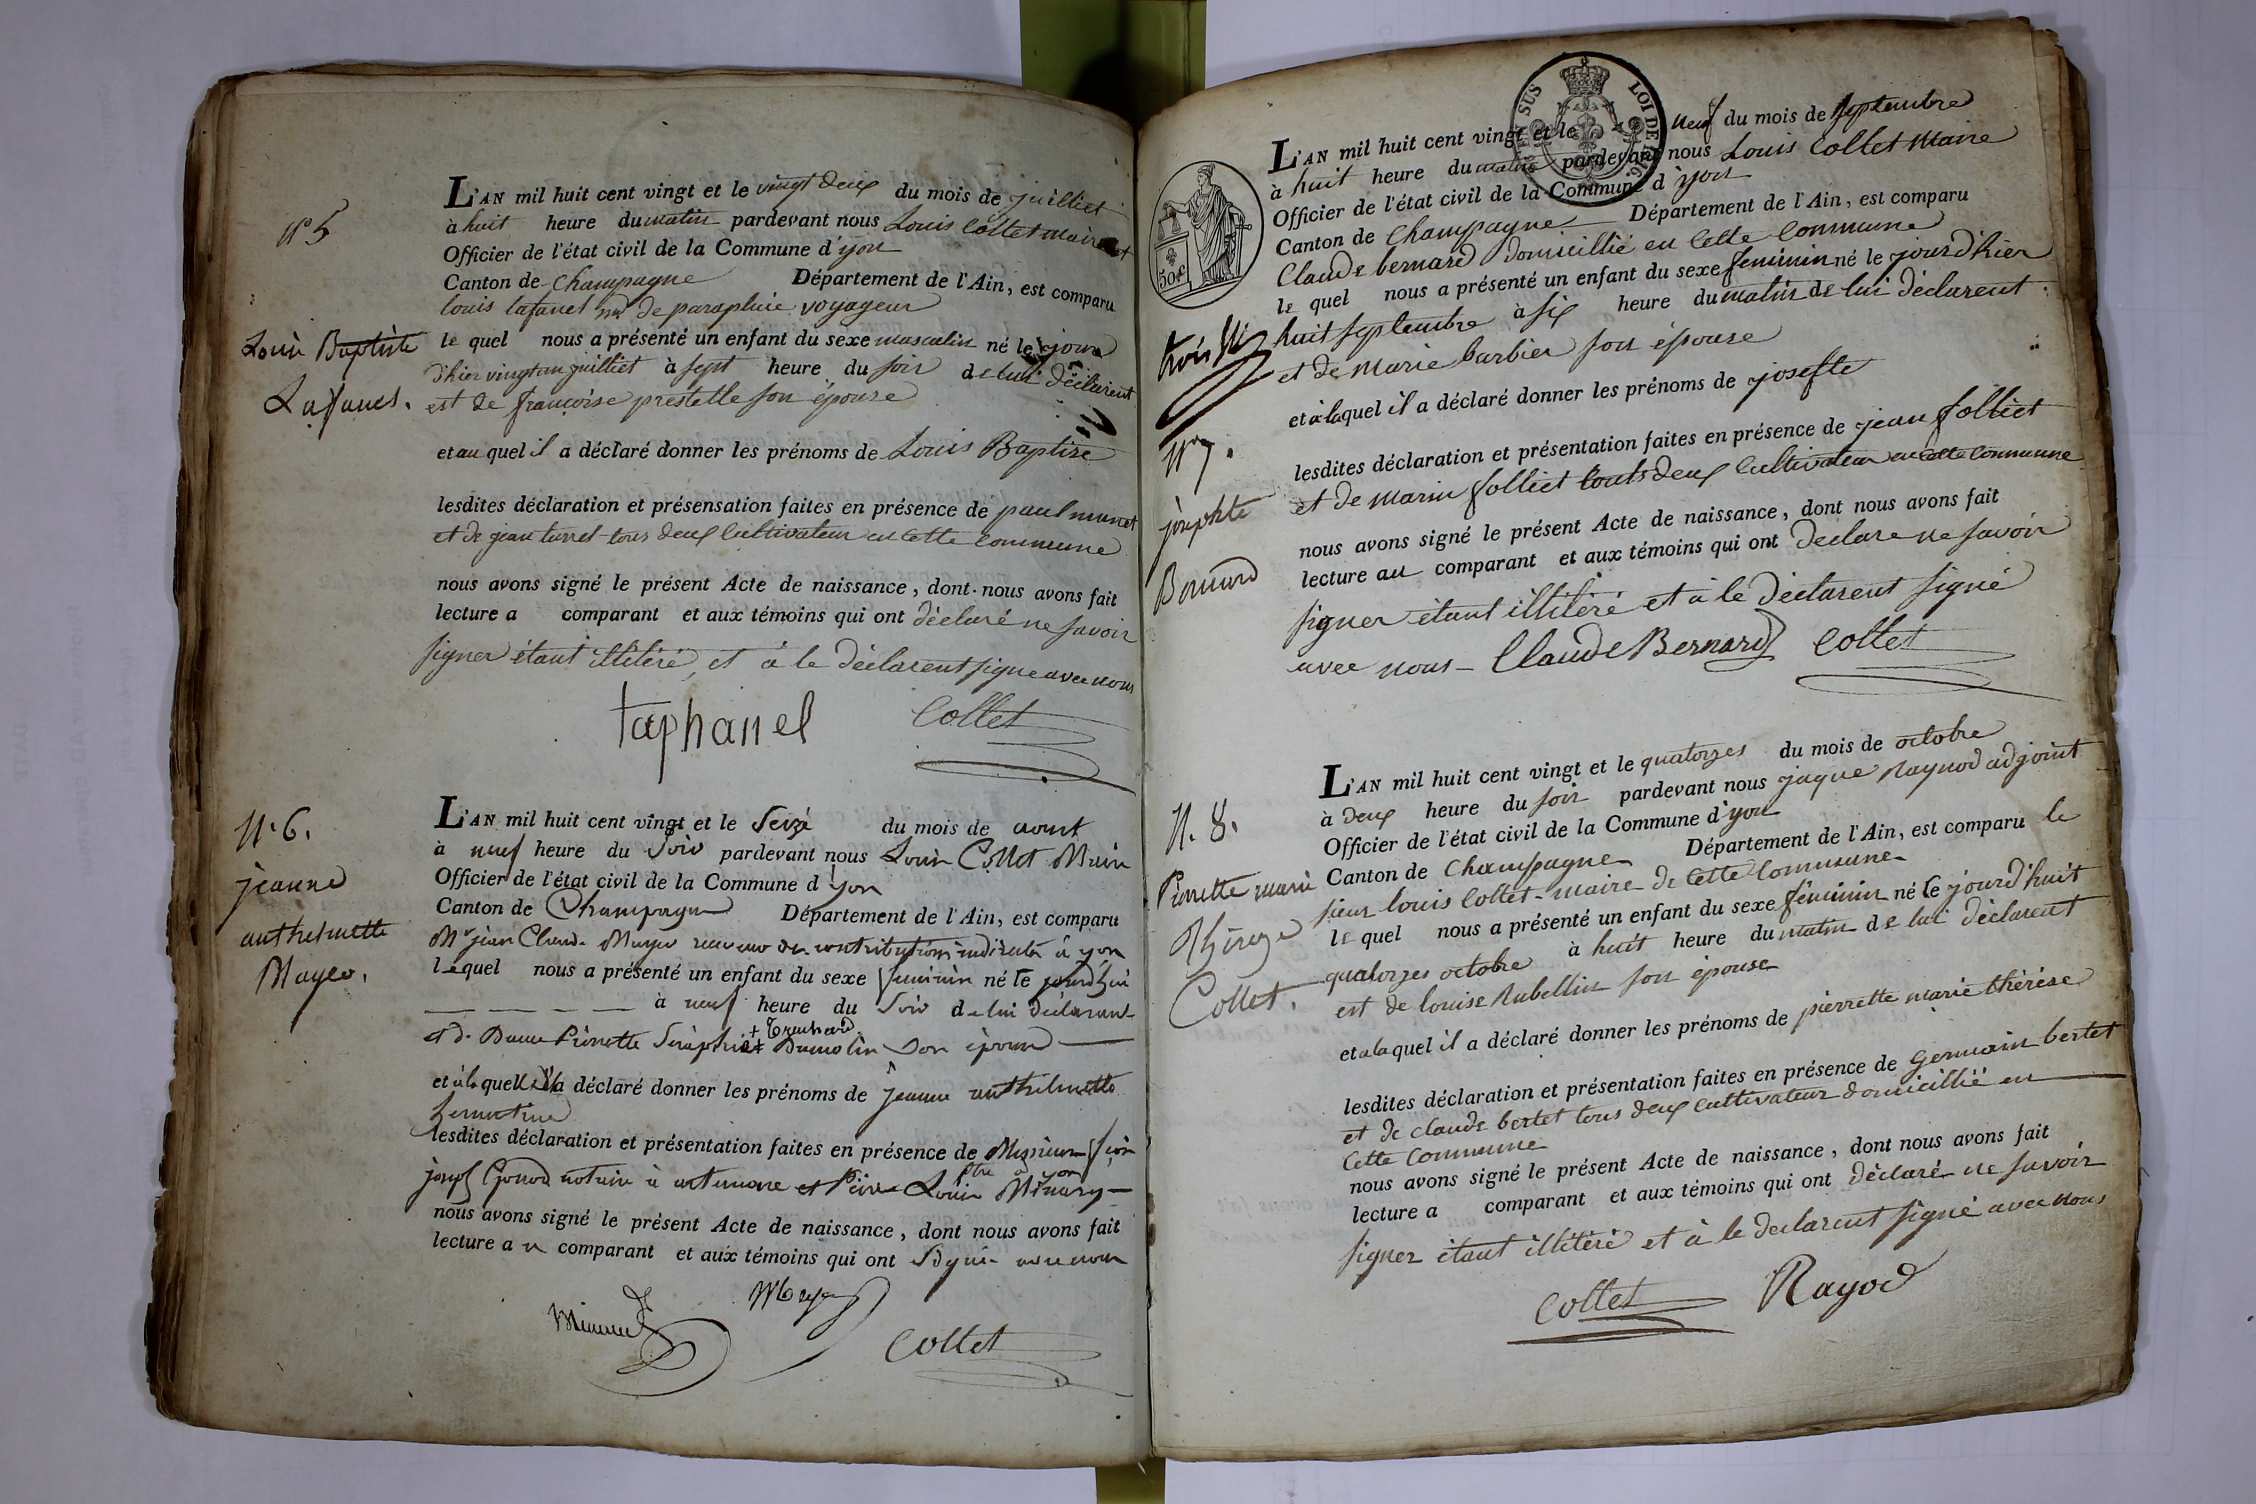 N° 5
Louis Baptiste
Lafanel.
L'AN mil huit cent vingt et le vingt deux du mois de juilliet
à huit heure du matin pardevant nous Louis Collet maire et
Officier de l'état civil de la Commune d'yon
Canton de Champagne Département de l'Ain, est comparu
louis lafanel md de parapluie voyageur
le quel nous a présenté un enfant du sexe masculin né le jour
d'hier vingt un juilliet à sept heure du soir de lui déclarent
est de françoise prestelle son épouse
et au quel il a déclaré donner les prénoms de Louis Baptise
lesdites déclaration et présensation faites en présence de paul munet
et de jean turrel tous deux Cultivateur en cette commune
nous avons signé le présent Acte de naissance, dont nous avons fait
lecture a comparant et aux témoins qui ont déclaré ne savoir
signer étant illiléré, et à le déclarent signe avec nous
taphanel Collet
N. 6.
jeanne
anthelmette
Mayeo.
L'AN mil huit cent vingt et le Seize du mois de aoust
à neuf heure du Soir pardevant nous Louis Collet Maire
Officier de l'état civil de la Commune d'yon
Canton de Champagne Département de l'Ain, est comparu
Mr jean Claude receveur de contributions indirectes à yon
Lequel nous a présenté un enfant du sexe feminin né le jourd'hui
à neuf heure du Soir de lui déclarant
et de Dame Pierrette Séraphie Dumolin son épouse
et à la quelle il a déclaré donner les prénoms de jeanne anthelmette
lesdites déclaration et présentation faites en présence de Messieurs
joseph notaire à artemare et Pierre Louis
nous avons signé le présent Acte de naissance, dont nous avons fait
lecture a u comparant et aux témoins qui ont Signé avec nous
Collet
50 c
LOI DE 1816.
L'AN mil huit cent vingt et le neuf du mois de septembre
à huit heure du matin pardevant nous Louis Collet Maire
Officier de l'état civil de la Commune d'yon
Canton de Champagne Département de l'Ain, est comparu
Claude bernard domicillié en Cette Commune
le quel nous a présenté un enfant du sexe feminin né le jour d'hier
huit septembre à six heure du matin de lui déclarent
et de Marie barbier son épouse
et à la quel il a déclaré donner les prénoms de josefte
lesdites déclaration et présentation faites en présence de jean folliet
et de Marin folliet touts deux Cultivateur en cette Commune
nous avons signé le présent Acte de naissance, dont nous avons fait
lecture au comparant et aux témoins qui ont declare ne savoir
signer étant illiléré et à le déclarent signé
avec nous - Claude Bernard Collet
N° 7.
josephte
Bernard
N. 8.
Pierrette marie
Thereze
Collet.
L'AN mil huit cent vingt et le quatorzes du mois de octobre
à deux heure du soir pardevant nous jaque Raynod adjoint
Officier de l'état civil de la Commune d'yon
Canton de Champagne Département de l'Ain, est comparu le
sieur louis Collet - maire de cette Commune
le quel nous a présenté un enfant du sexe féminin né le jourd'huit
quatorzes octobre à huit heure du matin de lui déclarent
est de louise Rubellin son épouse
et a la quel il a déclaré donner les prénoms de pierrette marie thérése
lesdites déclaration et présentation faites en présence de Germain bertet
et de claude bertet tous deux cultivateur domicillié en
Cette Commune
nous avons signé le présent Acte de naissance, dont nous avons fait
lecture a comparant et aux témoins qui ont déclaré ne savoir
signer étant illiléré et à le declarent signé avec nous
Collet Rayod